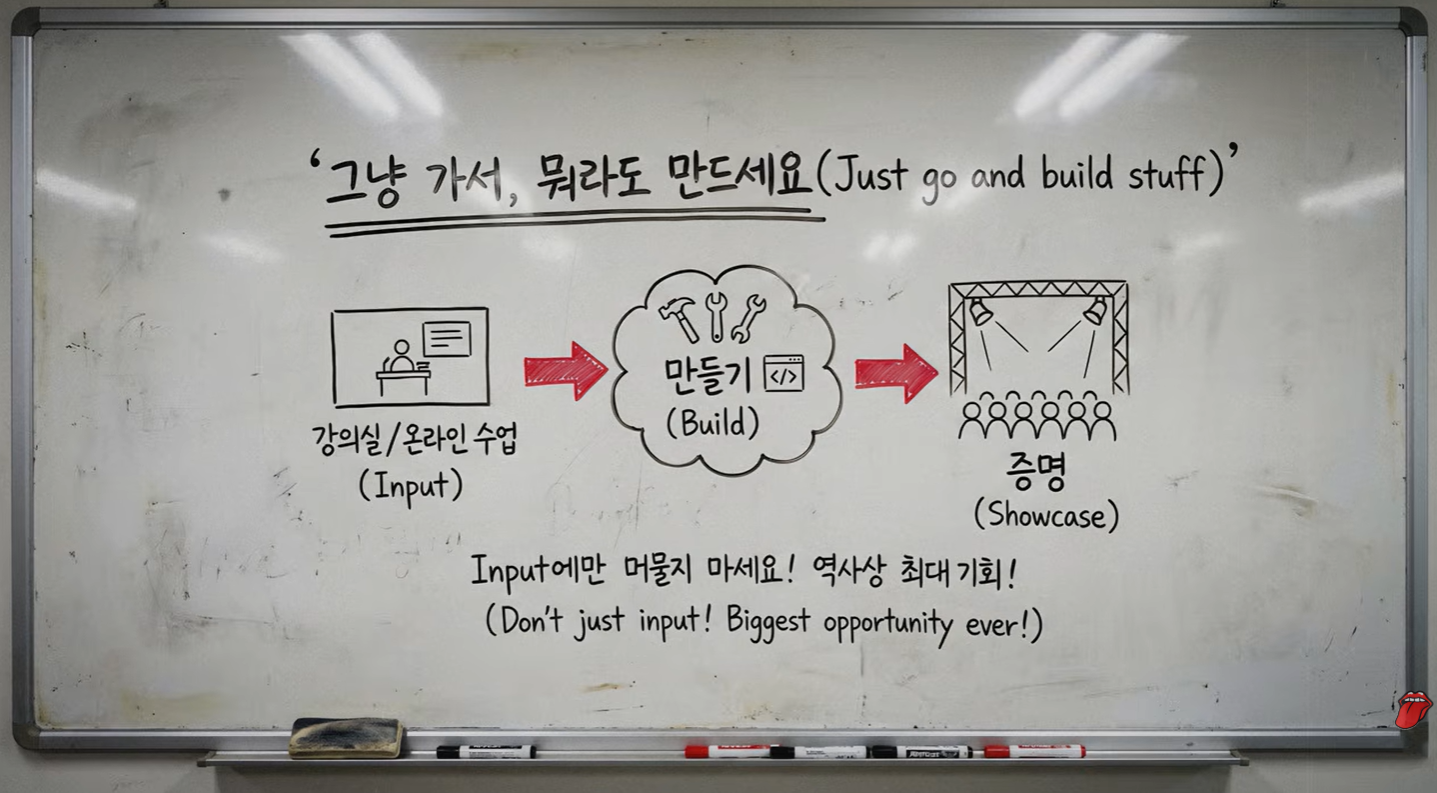 ‘그냥 가서, 뭐라도 만드세요(Just go and build stuff)’
만들기 </>
(Build)
강의실/온라인 수업
(Input)
증명
(Showcase)
Input에만 머물지 마세요! 역사상 최대 기회!
(Don't just input! Biggest opportunity ever!)